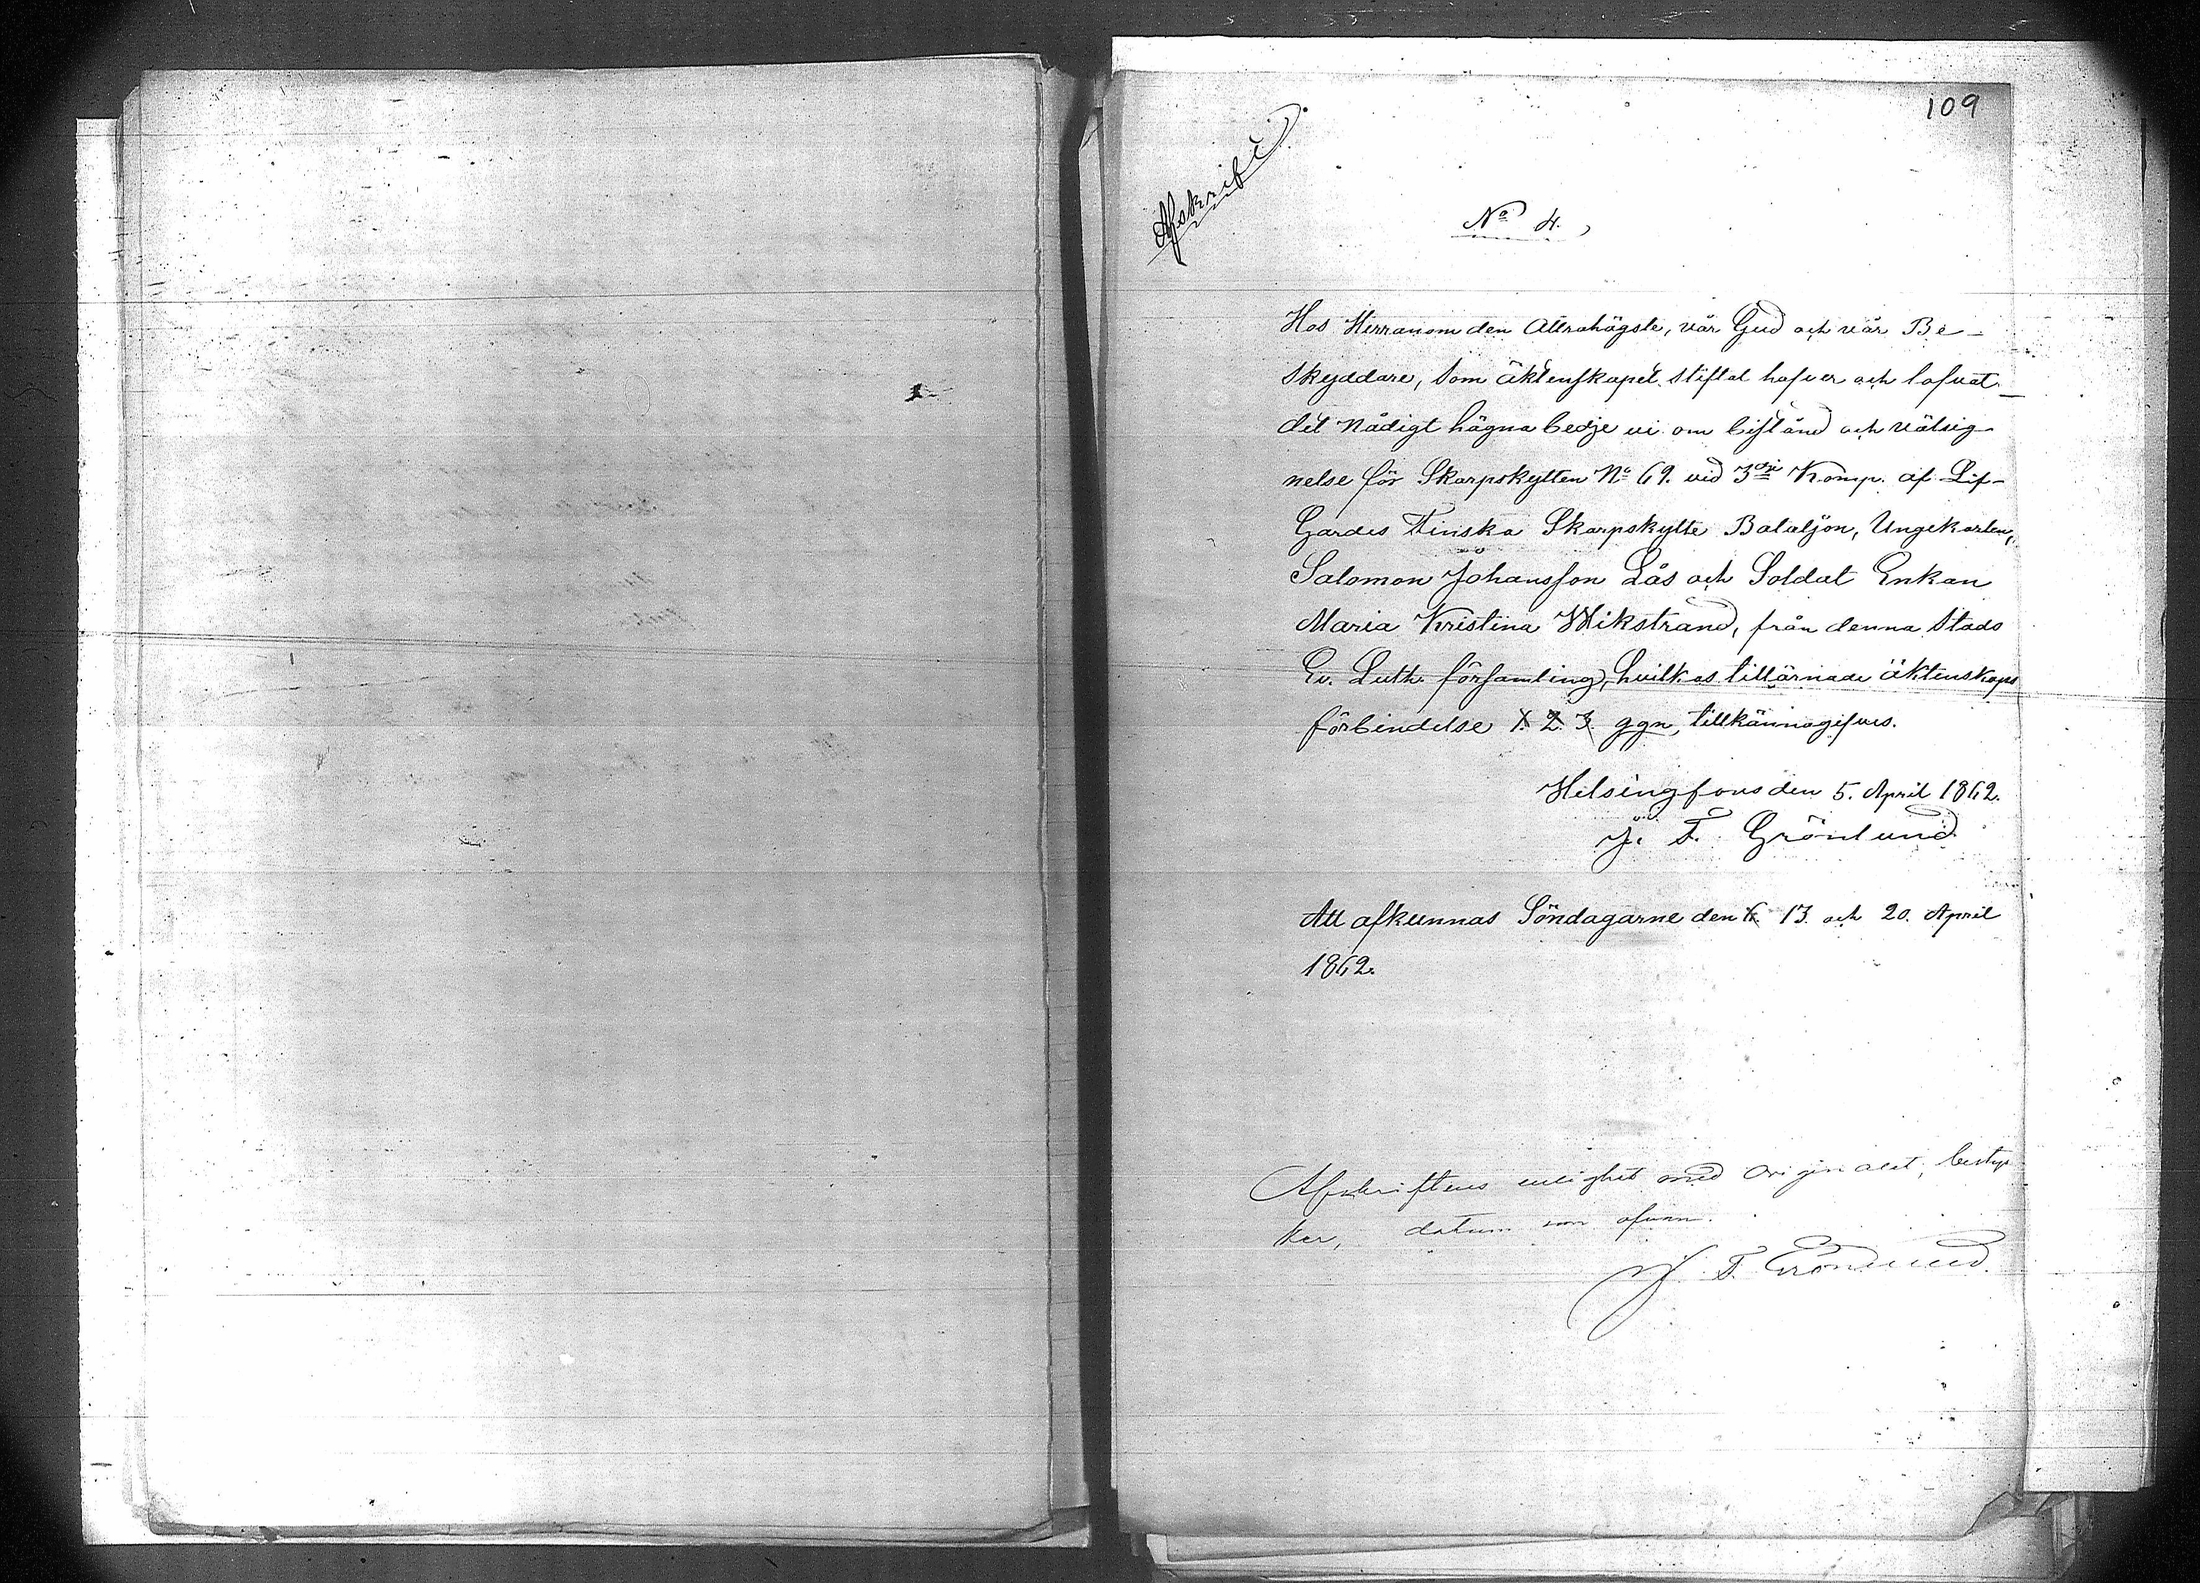 109
Afskrift.
No 4.
Hos Herranom den Allrahögste, vår Gud och vår Be-
skyddare, som äktenskapet stiftat hafver och lofvat
det nådigt hägna bedje vi om bistånd och välsig-
nelse för Skarpskytten No 69. vid 3dje Komp. af Lif-
Gardes Finska Skarpskytte Bataljon, Ungekarlen,
Salomon Johansson Lås och Soldat Enkan
Maria Kristina Wikstrand, från denna Stads
Ev. Luth. församling, hvilkas tillärnade äktenskaps
förbindelse 1. 2. 3. ggn, tillkännagifves.
Helsingfors den 5. April 1862.
J. F. Grönlund
Att afkunnas Söndagarne den 6. 13. och 20. April
1862.
Afskriftens enlighet med originalet, bestyr
ker, datum som ofvan.
J. F. Grönlund